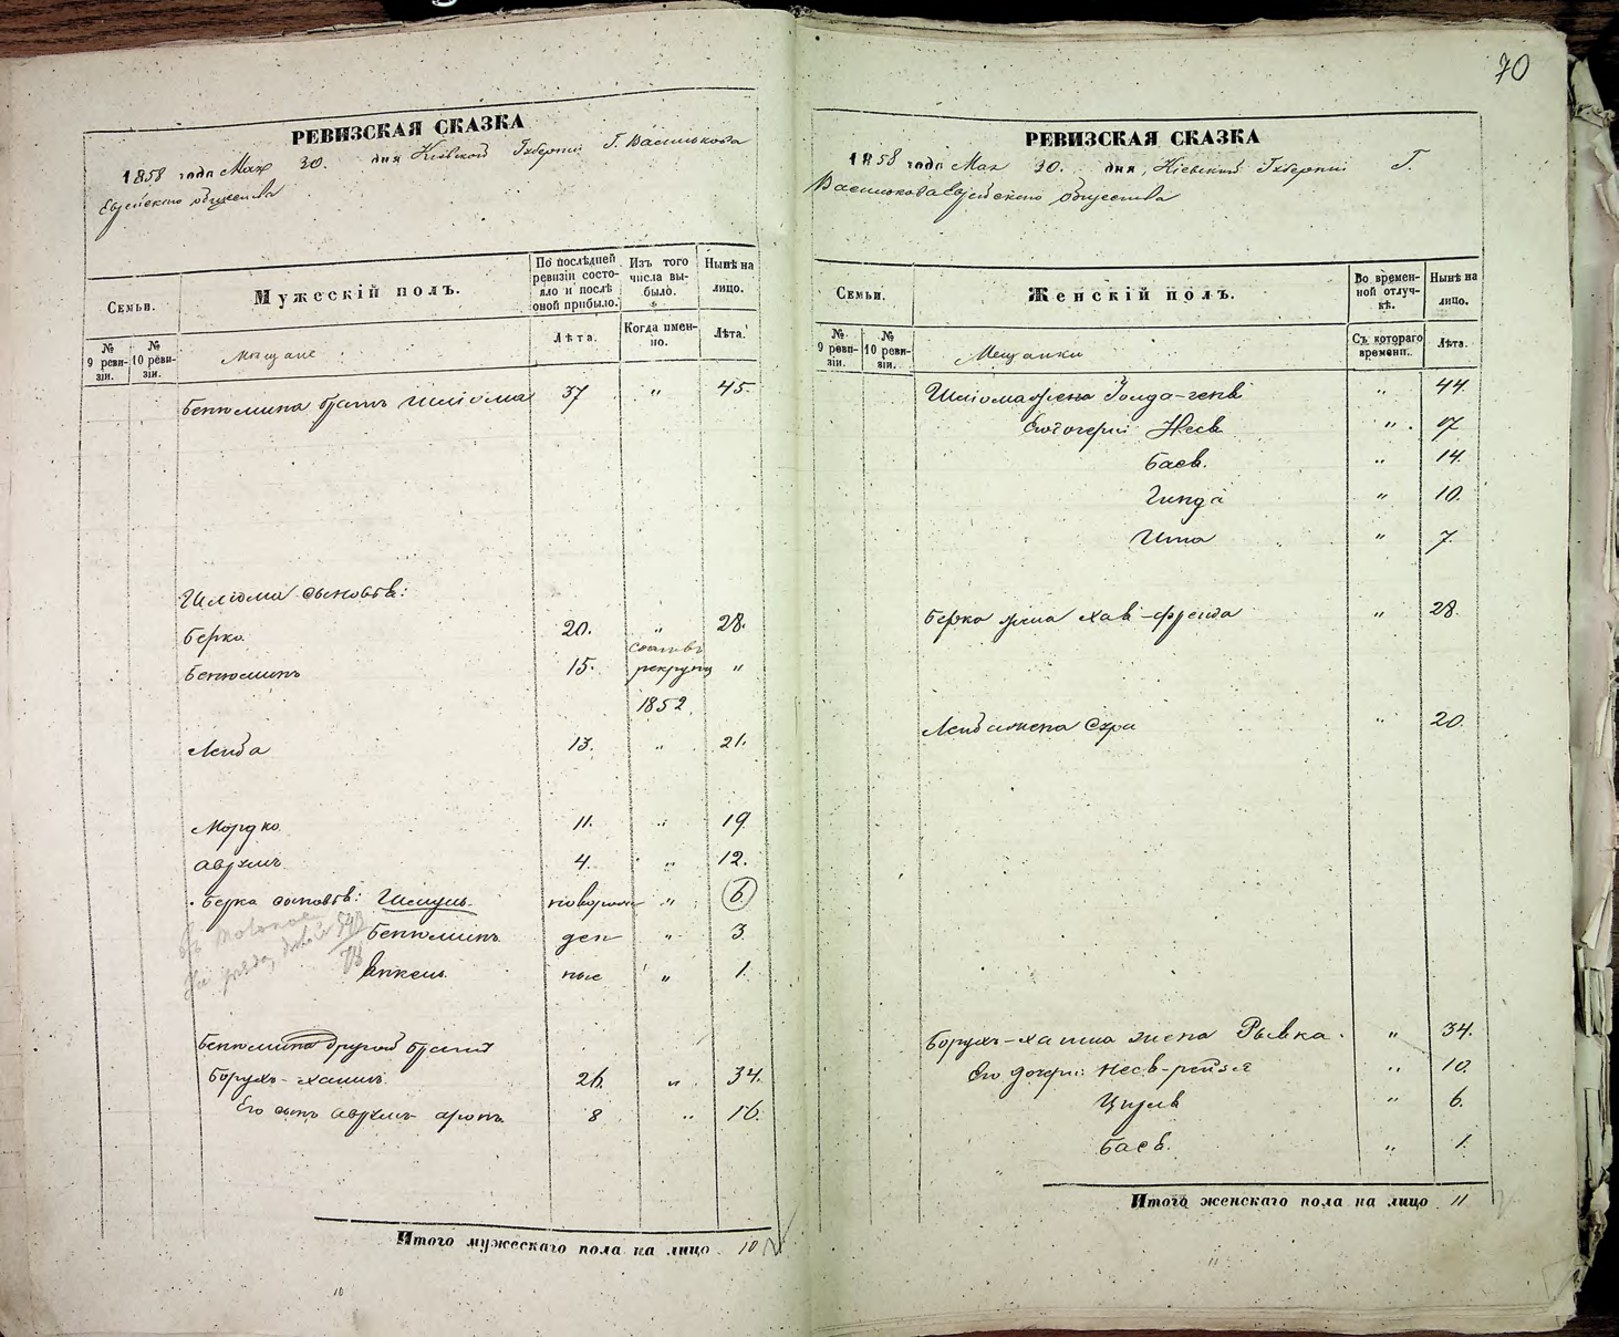 70
РЕВИЗСКАЯ СКАЗКА
1858 года Мая 30. дня Кіевской Губерніи Г. Василькова
Еврейскаго общества
Семьи.
Мужескій полъ.
По послѣдней ревизіи состояло и послѣ оной прибыло.
Изъ того числа выбыло.
Нынѣ на лицо.
№ 9 ревизіи.
№ 10 ревизіи.
Мещане
Лѣта.
Когда именно.
Лѣта.
Бенюмина братъ Шліома 37 " 45.
Шліома сыновья:
Берко 20. " 28.
Бенюминъ 15. рекруты "
1852.
Лейба 13. " 21.
Мордко 11. " 19
Аврумъ 4. " 12.
Берка сыновья: Шмуль новорож " 6
Бенюминъ ден " 3
Янкель ные " 1.
Бенюмина другой братъ
Борухъ-хаимъ 26. " 34.
Его сынъ Аврумъ аронъ 8 " 16.
Итого мужескаго пола на лицо 10
10
РЕВИЗСКАЯ СКАЗКА
1858 года Мая 30. дня, Кіевской Губерніи Г.
Василькова Еврейскаго общества
Семьи.
Женскій полъ.
Во временной отлучкѣ.
Нынѣ на лицо.
№ 9 ревизіи.
№ 10 ревизіи.
Мещанки
Съ котораго времени.
Лѣта.
Шліома жена Голда-геня " 44.
Его дочери Неся "
Бася. " 14.
Гинда " 10.
Ита " 7.
Берка жена Хая-фрейда " 28.
Лейба жена Сура " 20.
Борухъ-хаима жена Рывка. " 34.
Его дочери Неся-рейзя " 10.
Цирля " 6.
Бася. " 1.
Итого женскаго пола на лицо 11
11